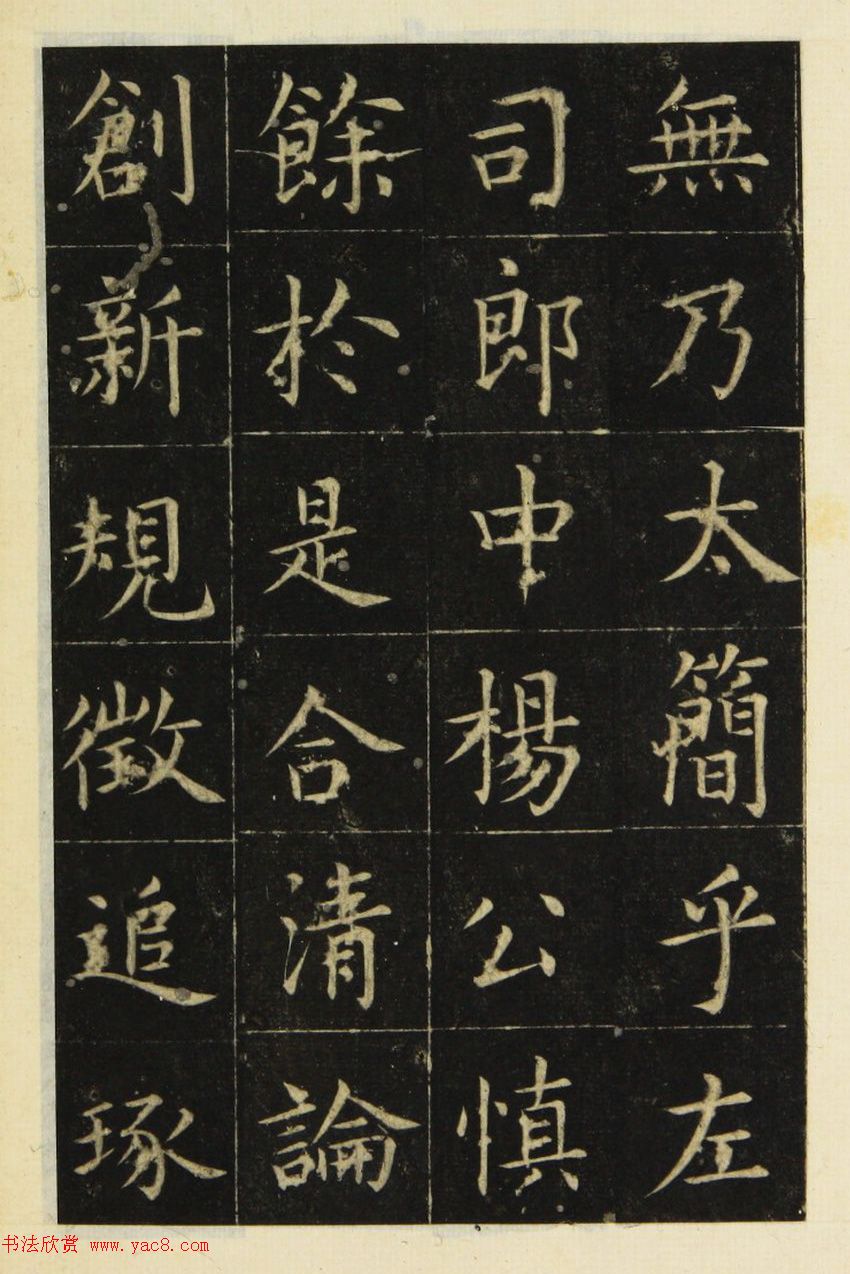 無乃太簡乎左
司郎中楊公慎
餘於是合清論
創新規徵追琢
书法欣赏 www.yac8.com